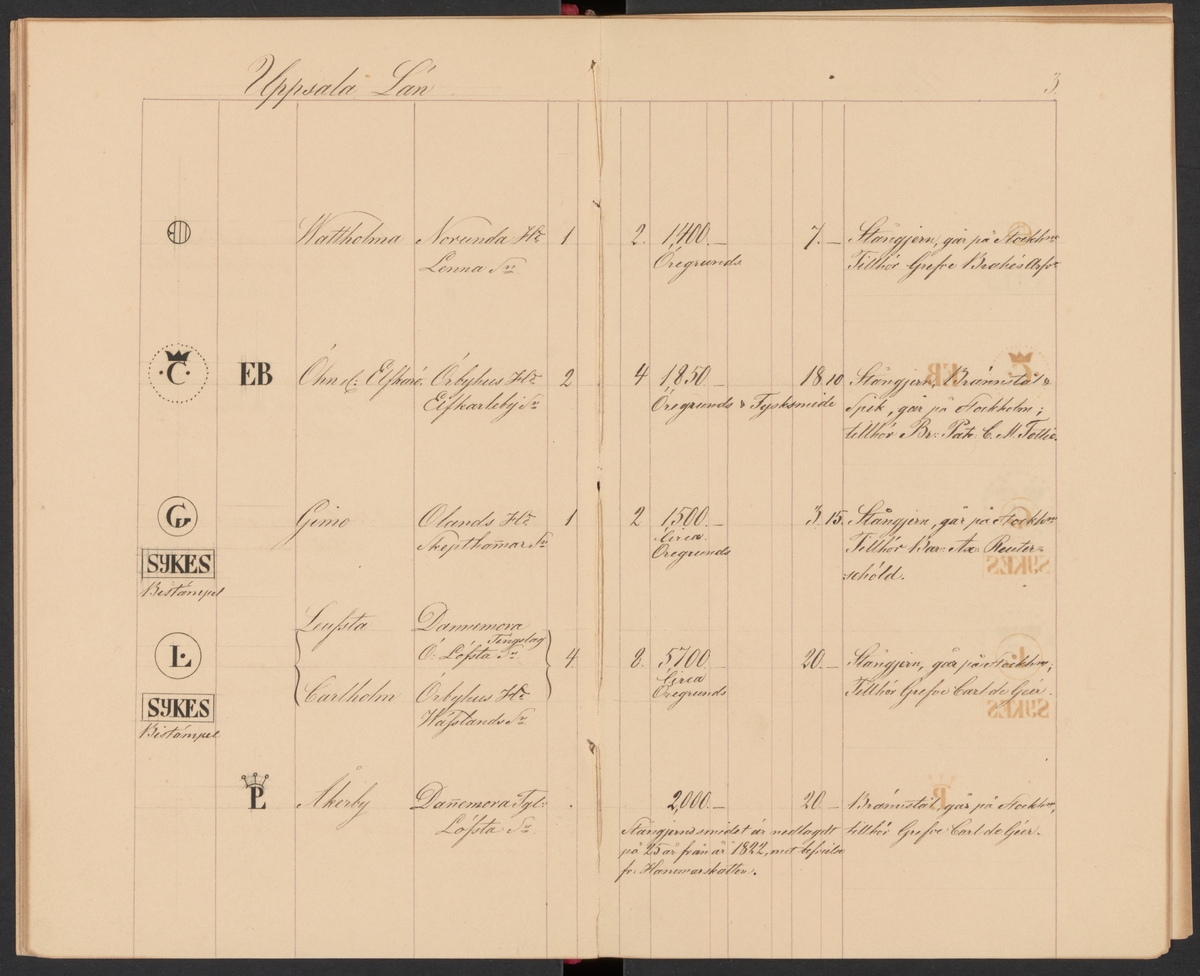 Uppsala Län
3.
Wattholma Norunda Hd 1 2. 1,400.— 7.— Stångjern, går på Stockhm
Lenna Sn Öregrunds Tillhör Grefve Brahes Arfv
C EB Öhn el: Elfkarö. Örbyhus Hd 2 4 1,850 — 18.10 Stångjern, Brännstål &
Elfkarleby Sn Öregrunds & Tysksmide Spik, går på Stockholm;
tillhör Br: Patr. C. M. Tottie.
G Gimo Olands Hd 1 2 1500.— 3.15. Stångjern, går på Stockhm
Skepthamar Sn Circa Tillhör Bar: Ax. Reuter-
SYKES Öregrunds schöld.
Bistämpel
Leufsta Dannemora
Tingslag
L Ö: Löfsta Sn 4 8. 5700. 20.— Stångjern, går på Stockhm;
Circa
Carlholm Örbyhus Hd Öregrunds Tillhör Grefve Carl de Géer.
SYKES Wästlands Sn
Bistämpel
PL Åkerby Danemora Tgl: 2,000.— 20.— Brännstål, går på Stockhm,
Löfsta Sn Stångjernssmidet är nedlagdt tillhör Grefve Carl de Géer.
på 25 år från år 1822, mot befrielse
fr. Hammarskatten.